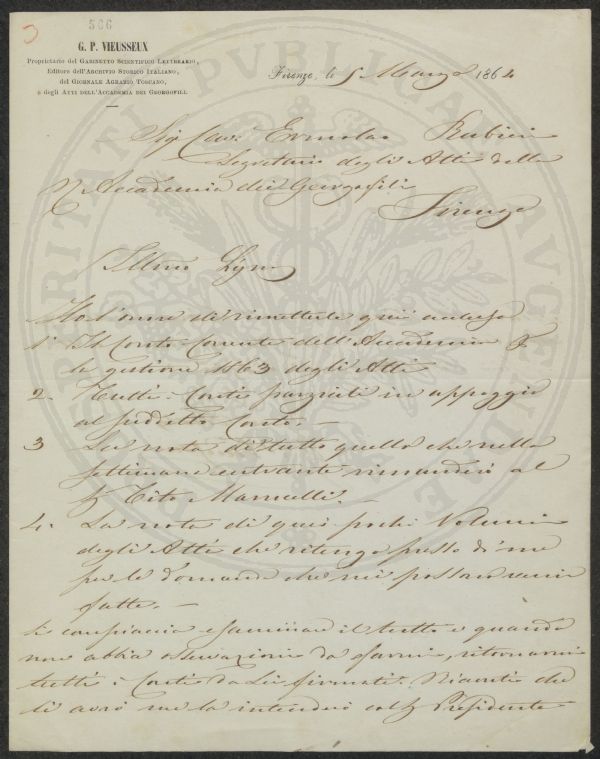 506
G. P. VIEUSSEUX
Proprietario del GABINETTO SCIENTIFICO LETTERARIO,
Editore dell'ARCHIVIO STORICO ITALIANO,
del GIORNALE AGRARIO TOSCANO,
e degli ATTI DELL'ACCADEMIA DEI GEORGOFILI.
Firenze, li 5 Marzo 1864
PROSPERITATI PUBLICAE AUGENDAE
Sig Cav Ermolao Rubieri
Segretario degli Atti della
R Accademia dei Georgofili
Firenze
Illmo Sigre
Ho l'onore di rimetterle qui accluso
1° Il Conto Corrente dell'Accademia
la gestione 1863 degli Atti
2. Tutti i Conti parziali in appoggio
al suddetto Conto. —
3 La nota di tutto quello che nella
settimana entrante rimanderò al
Tito Mannelli. —
4. La nota di quei pochi Volumi
degli Atti che ritengo presso di me
per le domande che mi possano venir
fatte. —
Si compiaccia esaminare il tutto e quando
non abbia osservazioni da farmi, ritornarmi
tutti i Conti da Lei firmati. che
li avrò me la intenderò col Presidente